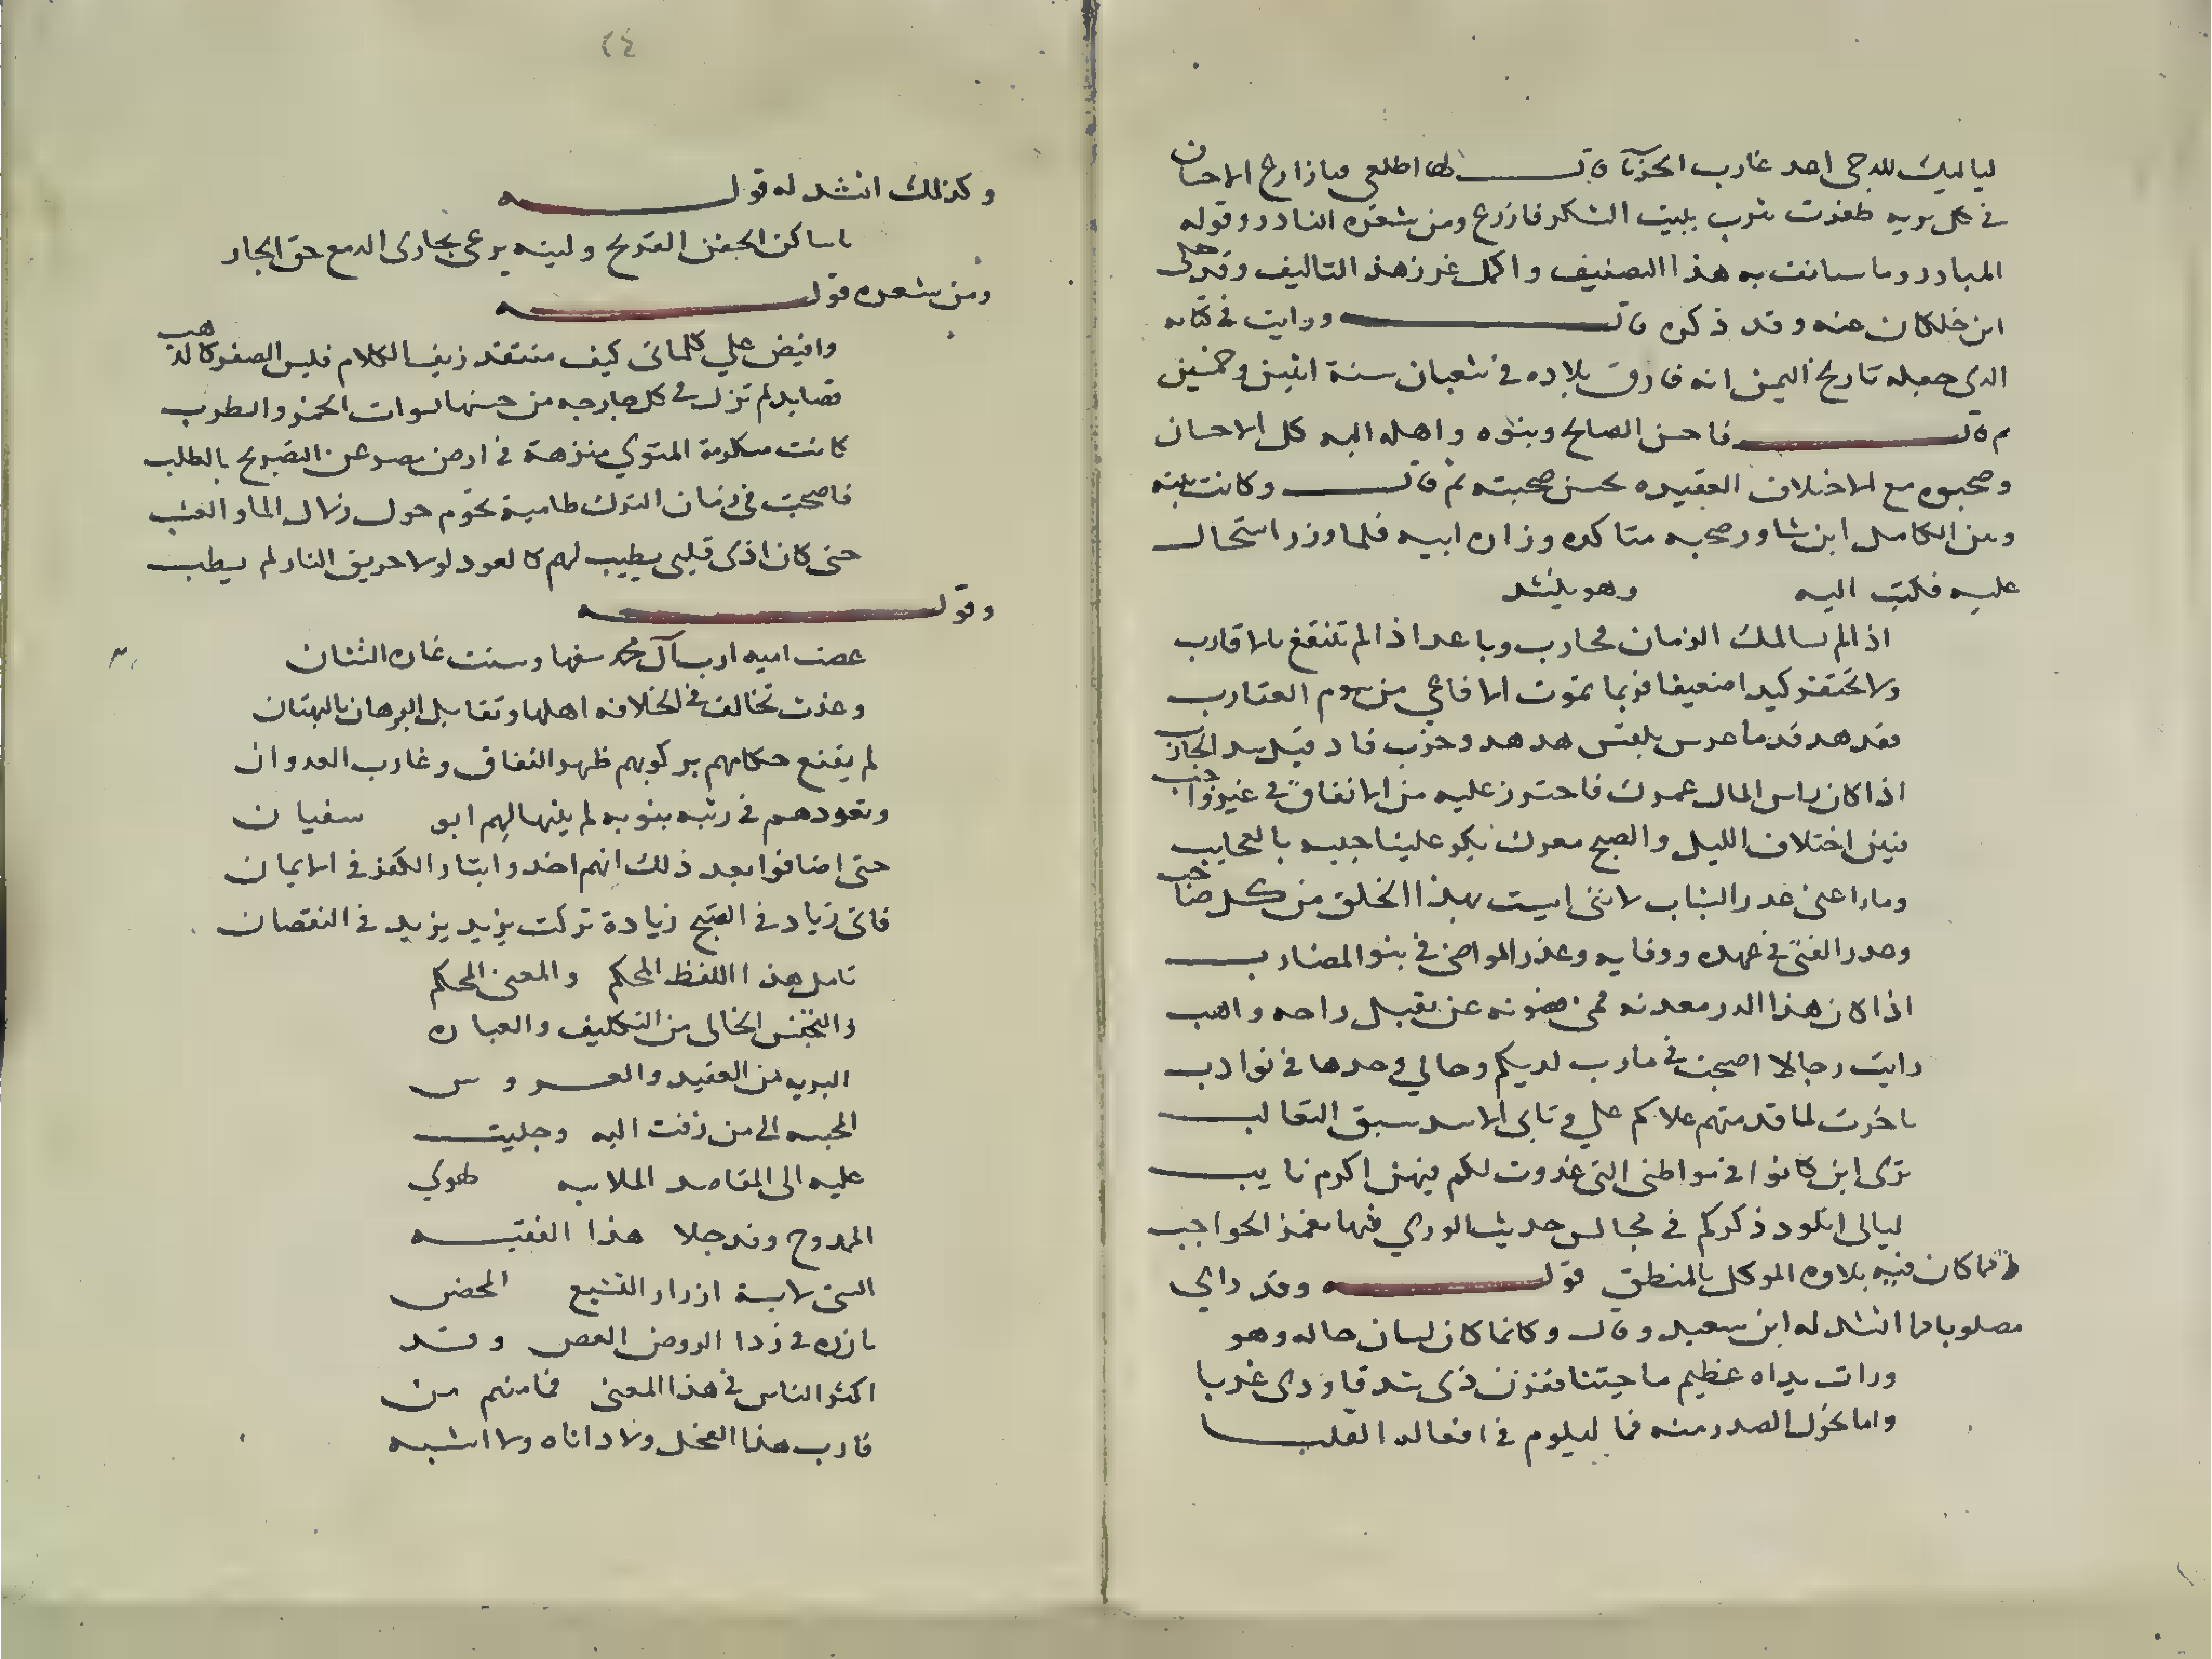 في كل بريه طغرت شرب ببيت الشكر فازرع ومن شعره النادر وقوله
المبادر وما سانت به هذا التصنيف واكمل غرز هذ التاليف وقد حكى
ابن خلكان عنه وقد ذكره قال ورايت في كتابه
الذى جعله تاريخ اليمن انه فارق بلاده في شعبان سنة اثنين وخمسين
م قال فاحسن الصالح وبنوه واهله اليه كل الاحسان
وصحبوه مع الاختلاف العقيده بحسن صحبته ثم قال وكانت بينه
وبين الكامل ابن شاور صحبه متاكده وزاره ابيه فلما وزر استحال
عليه فكتب اليه وهو ينشد
اذا لم يسالمك الزمان فحارب وباعد اذا لم تنتفع بالاقارب
ولا تحتقر كيد اضعيفا فربما تموت الافاعي من سموم العقارب
فقد هد قدما عرس بلقيس هدهد وخرب فار قبل سد المارب
اذا كان راس المال عمرك فاحترز عليه من الانفاق في غير واجب
فبين اختلاف الليل والصبح معرك يكر علينا جيبه بالعجايب
وما راعنى غدر الشباب لانني انست بهذا الخلق من كل صاحب
وغدر الفتى في عهده ووفايه وغدر المواضى في بنو المضارب
اذا كان هذا الدر معدنه فمى فصونه عن تقبيل راحه واهب
رايت رجالا اصبحت في مادب لديكم وحالي وحدها في نوادب
تاخرت لما قدمتهم علاكم علي وتابى الاسد سبق الثعالب
ترى اين كانوا في مواطنى التى غدوت لكم فيهن اكرم نايب
ليالى اتلو ذكركم في مجالس حديث الورى فيها بغمز الحواجب
كان فيه بلاوه الموكل بالمنطق قوله وقد راي
مصلوبا فما انشد له ابن سعيد وقال وكانما كان لسان حاله وهو
ورات يداه عظيم ما جنتا ففررن ذى شرقا وذى غربا
وامال نحو الصدر منه فما ليلوم في افعاله القلبا
٢٤
وكذلك انشد له قوله
يا ساكن الجفن القريح وليته يرعى بجارى الدمع حق الجار
ومن شعره قوله
وافيض علي كلماتى كيف منتقد زيف الكلام فليس الصفر كالذهب
قصايد لم تزل في كل جارحه من حسنها نسوات الخمر والطرب
كانت مكرمة المثوي منزهة في ارض مصر عن التصريح بالطلب
فاصبحت في زمان الترك ظامية تحوم حول زلال الماء والعشب
حتى كان اذى قلبى يطيب لهم كالعود لولا حريق النار لم يطب
وقوله
غصبت اميه ارث آل محمد سفها وسنت غاره الشنئان
وغدت تخالف في الخلافه اهلها وتقابل البرهان بالبهتان
لم يقنع حكامهم بركوبهم ظهر النفاق وغارب العدوان
وقعودهم في رتبه نبويه لم يبنها لهم ابو سفيان
حتى اضافوا بعد ذلك انهم اخذوا بثار الكفر في الايمان
فاتى زياد في القبح زيادة تركت يزيد يزيد في النقصان
تامل هذا اللفظ المحكم والمعنى المحكم
والتجنس الخالى من التكليف والعباره
البريه من العقيد والعروس
المحبه الى من زفت اليه وجليت
عليه الى المقاصد الملابه طوى
الممدوح وقد جلا هذا الفقيه
السنى لابسة ازرار التشيع المحض
بازره في ردا الروض الغض وقد
اكثر الناس في هذا المعنى فما منهم من
قارب هذا الفحل ولا داناه ولا اشبه